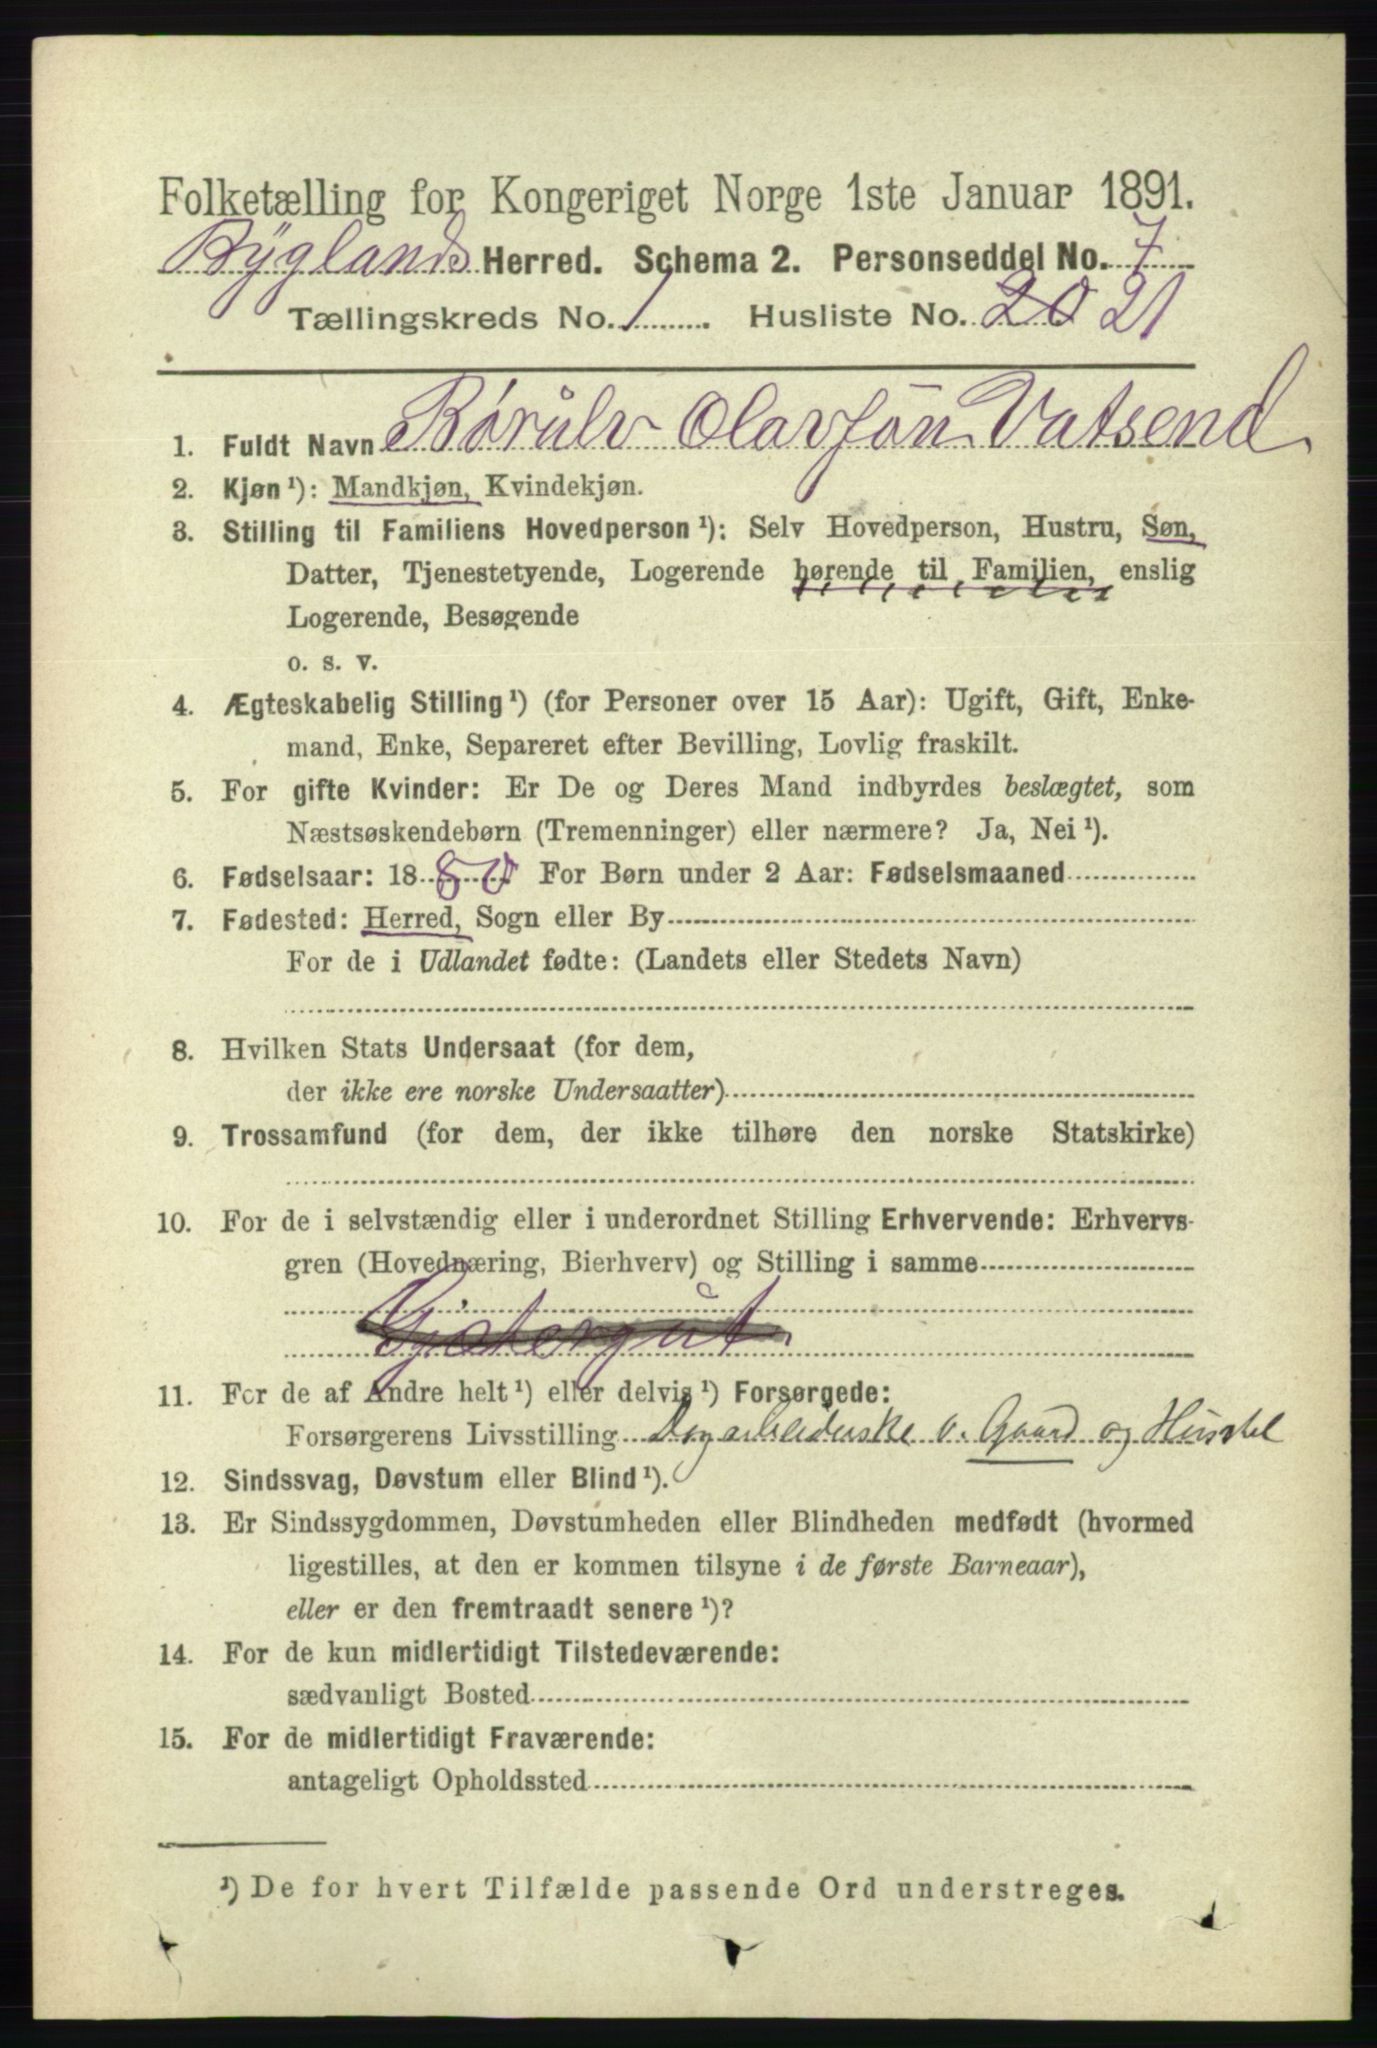 Folketælling for Kongeriget Norge 1ste Januar 1891.
Byglands Herred. Schema 2. Personseddel No. 7
Tællingskreds No. 1. Husliste No. 20 21
1. Fuldt Navn Børulv Olavson Vatsend
2. Kjøn ¹): Mandkjøn, Kvindekjøn.
3. Stilling til Familiens Hovedperson ¹): Selv Hovedperson, Hustru, Søn,
Datter, Tjenestetyende, Logerende hørende til Familien, enslig
Logerende, Besøgende
o. s. v.
4. Ægteskabelig Stilling ¹) (for Personer over 15 Aar): Ugift, Gift, Enke-
mand, Enke, Separeret efter Bevilling, Lovlig fraskilt.
5. For gifte Kvinder: Er De og Deres Mand indbyrdes beslægtet, som
Næstsøskendebørn (Tremenninger) eller nærmere? Ja, Nei ¹).
6. Fødselsaar: 1880 For Børn under 2 Aar: Fødselsmaaned
7. Fødested: Herred, Sogn eller By
For de i Udlandet fødte: (Landets eller Stedets Navn)
8. Hvilken Stats Undersaat (for dem,
der ikke ere norske Undersaatter)
9. Trossamfund (for dem, der ikke tilhøre den norske Statskirke)
10. For de i selvstændig eller i underordnet Stilling Erhvervende: Erhvervs-
gren (Hovednæring, Bierhverv) og Stilling i samme
Gjætergut
11. For de af Andre helt ¹) eller delvis ¹) Forsørgede:
Forsørgerens Livsstilling Dagarbeiderske v. Gaard og Husstel
12. Sindssvag, Døvstum eller Blind ¹).
13. Er Sindssygdommen, Døvstumheden eller Blindheden medfødt (hvormed
ligestilles, at den er kommen tilsyne i de første Barneaar),
eller er den fremtraadt senere ¹)?
14. For de kun midlertidigt Tilstedeværende:
sædvanligt Bosted
15. For de midlertidigt Fraværende:
antageligt Opholdssted
¹) De for hvert Tilfælde passende Ord understreges.